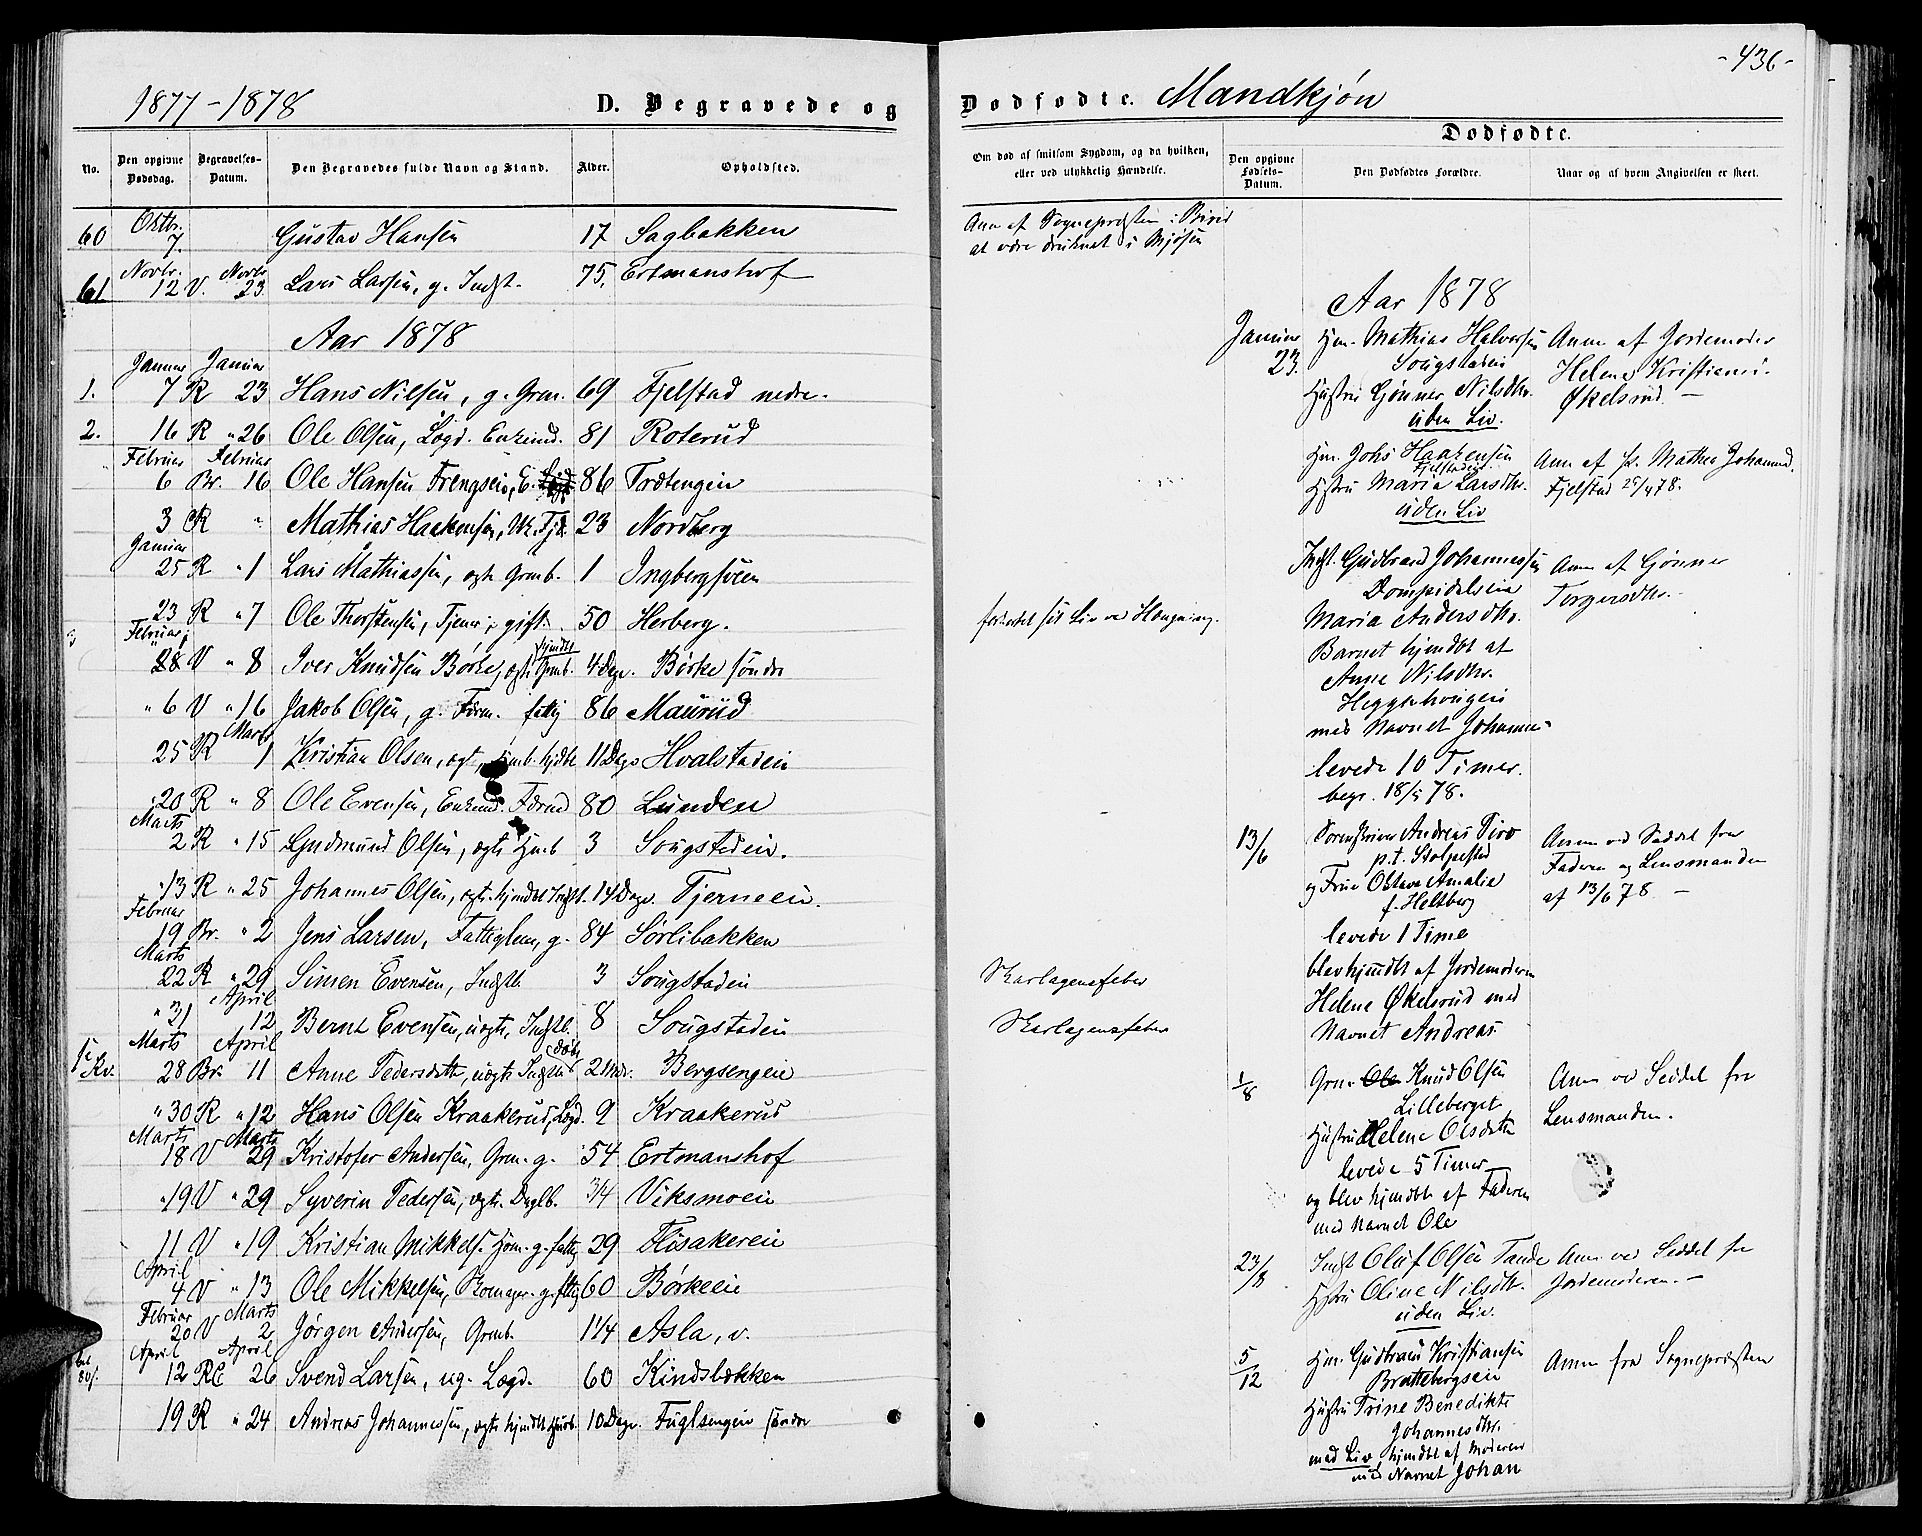 -436-
1877-1878 D. Begravede og Dødfødte. Mandkjøn
No. Den opgivne Dødsdag. Begravelses-Datum. Den Begravedes fulde Navn og Stand. Alder. Opholdsted.
60 Oktbr. 7. Gustav Hansen 17 Sagbakken
61 Novbr. 12 V. Novbr 23 Lars Larsen, g. Indst. 75, Ertmanshof
Aar 1878
1. Januar 7 R Januar 23 Hans Nilsen, g. Grm. 69 Fjelstad nedre.
2. 16 R " 26 Ole Olsen, Lægd. Enkemd. 81 Roterud
Februar 6 Br. Februar 16 Ole Hansen Frengseie, E. 86 Todtengen
3 R " Mathias Haakensen, Uk. Tj. 23 Nordberg
Januar 25 R " 1 Lars Mathiassen, ægte Grmb. 1 Ingbergsveen
23 R " 7 Ole Thorstensen, Tjener, gift. 50 Herberg.
Februar 28 V " 8 Iver Knudsen Børke, ægte hjmdbt Grmb. 4 Dage. Børke søndre
" 6 V " 16 Jakob Olsen, g. Form. fattig 86 Maurud
25 R Marts 1 Kristian Olsen, ægt, hjdbt 11 Dage Hvalstadeie
20 R " 8 Ole Evensen, Enkemd. 80 Lunden
Marts 2 R " 15 Gudmund Olsen, ægte Hjmb 3 Sougstadeie.
13 R " 25 Johannes Olsen, ægte hjmdbt Indst. 14 Dage. Tjerneeie.
Februar 19 Br. " 2 Jens Larsen, Fattiglem, g. 84 Sørlibakken
Marts 22 R " 29 Simen Evensen, Indstb 3 Sougstadeie
" 31 April 12 Bernt Evensen, uægte, Indstb. 8 Sougstadeie
Kv. Marts 28 Br. April 11 Anne Pedersdatter, uægte Indstb døbt 2 Mdr. Bergsengeie
" 30 R " 12 Hans Olsen Kraakerud, Lægd. 9 Kraakerud
Marts 18 V Marts 29 Kristofer Andersen, Grm. g. 54 Ertmanshof
" 19 V " 29 Syverin Pedersen, ægte. Daglb. 3/4 Viksmoeie
11 V " 19 Kristian Mikkels. Hjm. g. fattig 29 Flisakereie
April 4 V " 13 Ole Mikkelsen, Skomager. g. fttig 60 Børkeeie
Februar 20 V Marts 2 Jørgen Andersen, Grmb. 1 1/4 Asla, v.
April 12 R April 26 Svend Larsen, ug. Lægd. 60 Kindslækken
19 R " 24 Andreas Johannessen, ægte hjmdbt Hjmb. 10 Dage. Fuglsengeie søndre
Om død af smitsom Sygdom, og da hvilken, eller ved ulykkelig Hændelse.
Anm af Sognepræsten i Birid
at være druknet i Mjøsen
forkortet sit Liv ved Hængning.
Skarlagensfeber
Skarlagensfeber
Dødfødte.
Den opgivne Fødsels-Datum. Den Dødfødtes Forældre. Naar og af hvem Angivelsen er skeet.
Aar 1878
Januar 23. Hjm. Mathias Halvorsen Anm af Jordemoder
Sougstadeie Helene Kristians.
Hustru Gjønner Nilsdtr. Økelsrud. -
uden Liv.
Hjm. Johs Haakensen Anm af Mathea Johannesd.
Fjelstadeie
Hstru Maria Larsdtr. Fjelstad 25/4 78.
uden Liv
Indst. Gudbrand Johannessen Anm af Gjønner
Dompidalseie Torgersdtr. -
Maria Andersdtr.
Barnet hjmdbt af
Anne Nilsdtr.
Heggehougen
med Navnet Johannes
levede 10 Timer.
begr. 18/5 78.
13/6 Sorenskriver Andreas Piro Anm ved Seddel fra
p.t. Stolpestad Faderen og Lensmanden
og Frue Oktava Amalie af 13/6 78 -
f. Heltberg
levede 1 Time
blev hjmdbt af Jordemoderen
Helene Økelsrud med
Navnet Andreas
1/8 Grm. Ole Knud Olsen Anm ved Seddel fra
Lilleberget Lensmanden.
Hustru Helene Olsdatter
levede 5 Timer
og blev hjemdbt af Faderen
med Navnet Ole
23/8 Indst Oluf Olsen Tande Anm ved Seddel fra
Hstru Oline Nilsdtr. Jordemoderen. -
uden Liv.
5/12 Hjm. Gudbrand Kristiansen Anm fra Sognepræsten
Brattebergseie
Hustru Trine Benedikte
Johannesdtr.
med Liv hjmdbt af Moderen
med Navnet Johan